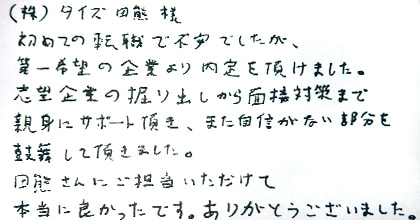 (株)タイズ 田熊 様
初めての転職で不安でしたが、
第一希望の企業より内定を頂けました。
志望企業の掘り出しから面接対策まで
親身にサポート頂き、また自信がない部分を
鼓舞して頂きました。
田熊さんにご担当いただけて
本当に良かったです。ありがとうございました。